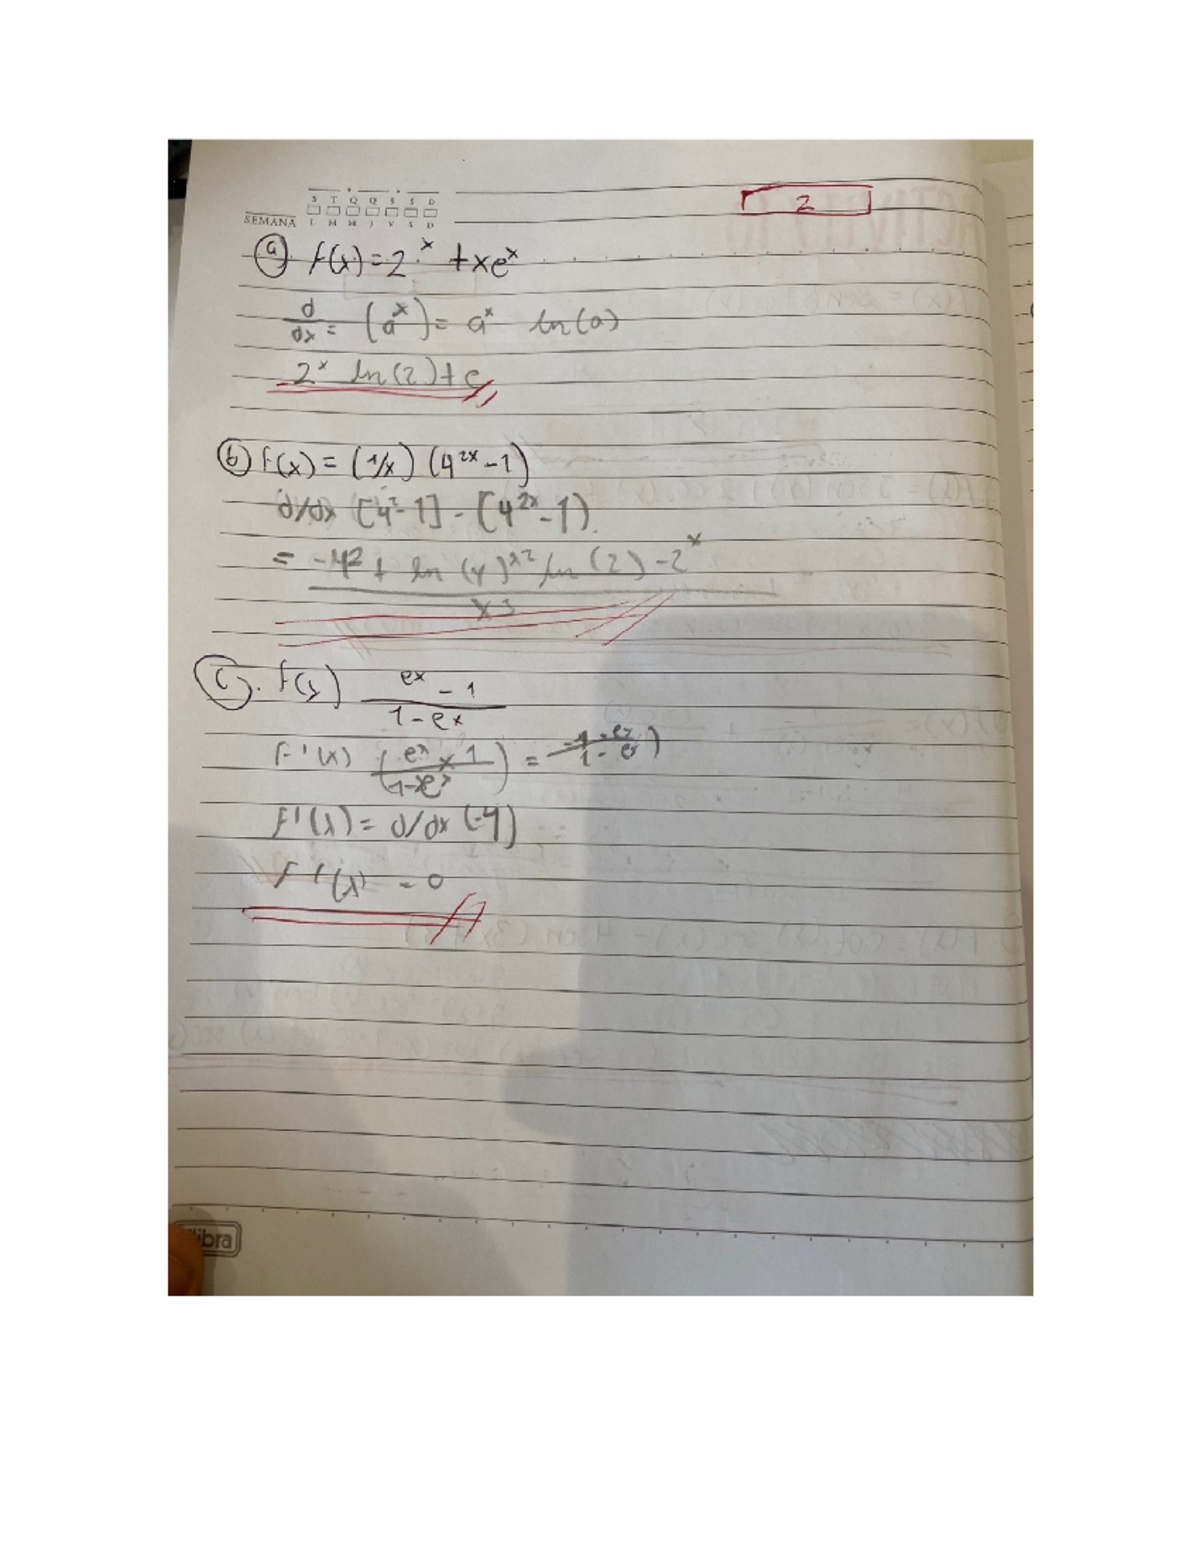 2
S T Q Q S S D
SEMANA L M M J V S D
a) f(x) = 2^x + xe^x
d/dx = (a^x) = a^x ln(a)
2^x ln(2) + e
b) f(x) = (1/x) (4^2x - 1)
d/dx [4^2 - 1] - [4^2x - 1)
= -4^2 + ln (4)^x2 ln (2) - 2^x
x3
c). f(x) e^x - 1
1 - e^x
F'(x) (e^x x 1 / 1-xe^x) =
F'(x) = d/dx (-4)
F'(x) - 0
ibra